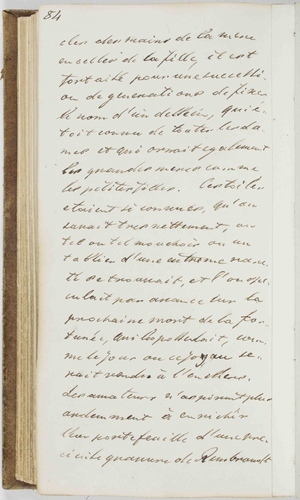 84
des des mains de la mere
en celles de la fille, il est
fort aisé pour une successi-
on de generations de fixer
le nom d'un dessein, qui é-
toit connu de toutes les da-
mes et qui ornait egalement
les grandes meres comme
les petites filles. Les toiles
etaient si connues, qu'on
savait tres nettement, ou
tel ou tel mouchoir ou un
tablier d'une
se trouvait, et l'on spe-
culait par avance sur la
prochaine mort de la for-
tunée, qui les possedait, com-
me le jour ou ce joyau se-
rait vendu à l'enchere.
des amateurs n'aspirent plus
ardemment à enrichir
leur portefeuille d'une
gravure de Rembrandt